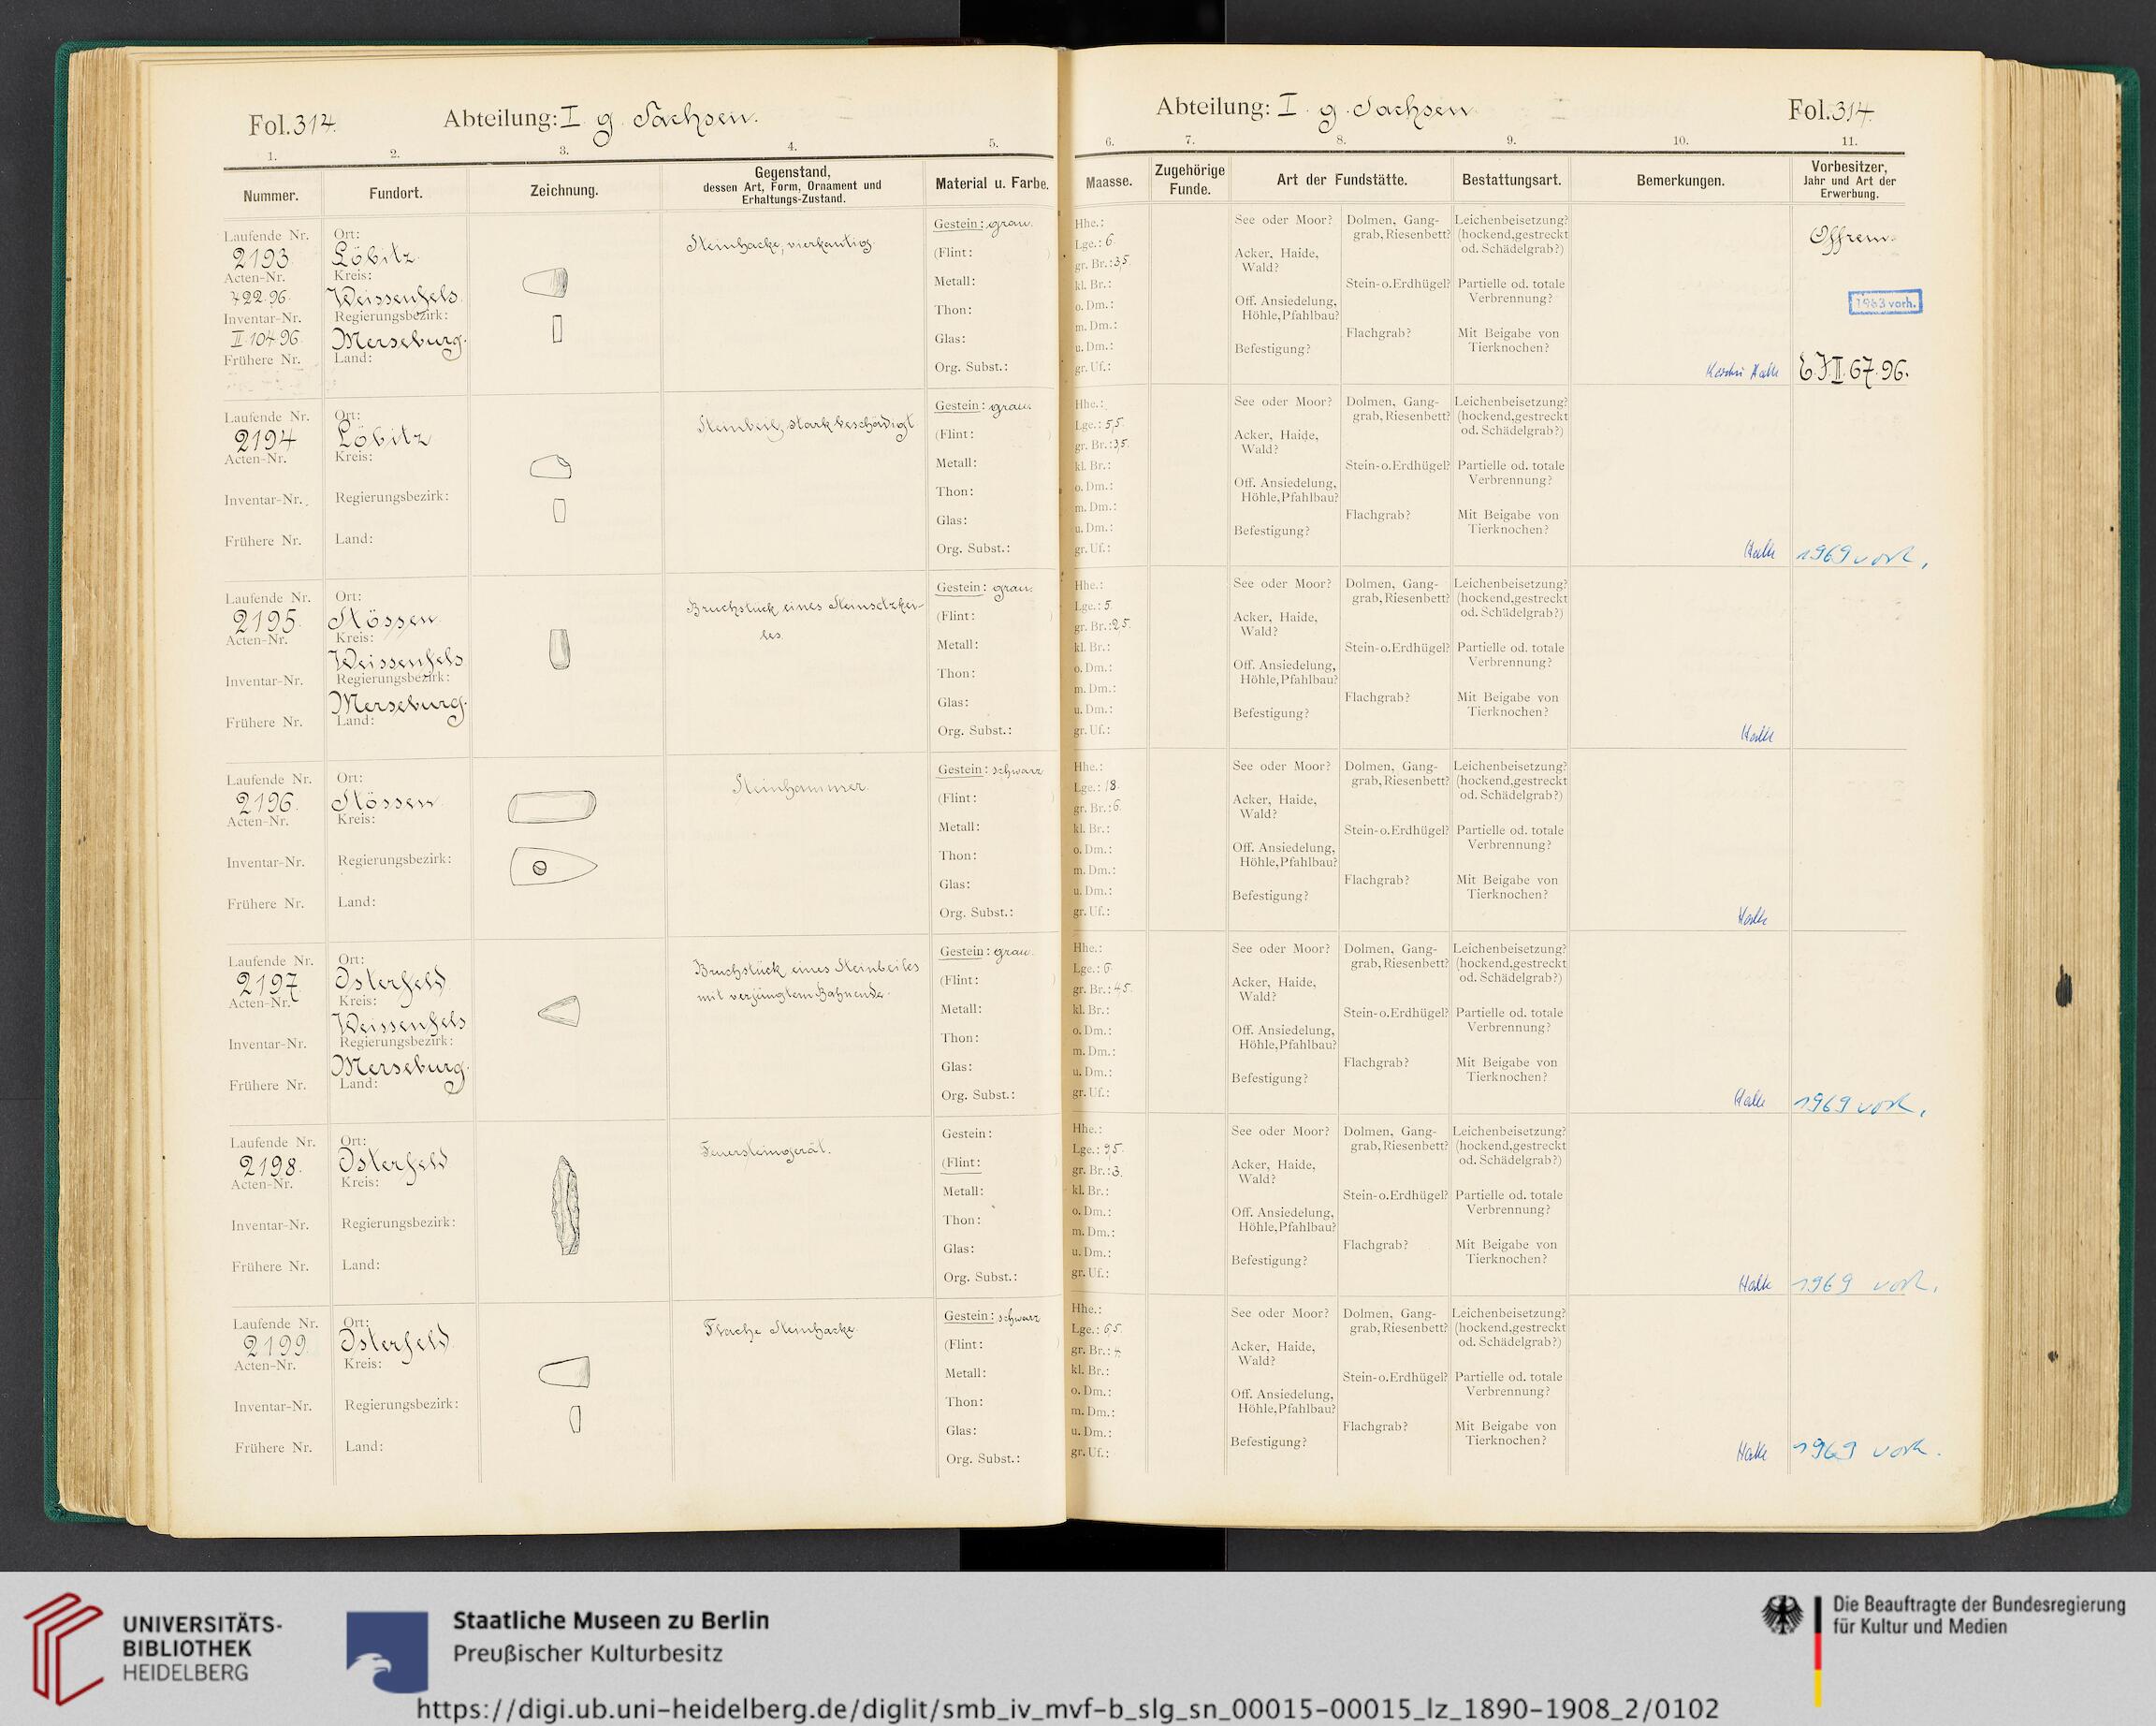 Fol. 314.
Abteilung: I g. Sachsen.
1. 2. 3. 4. 5.
Nummer. Fundort. Zeichnung. Gegenstand, dessen Art, Form, Ornament und Erhaltungs-Zustand. Material u. Farbe.
Laufende Nr. 2193
Acten-Nr. 722.96.
Inventar-Nr. II 104 96
Frühere Nr.
Ort: Löbitz
Kreis: Weissenfels
Regierungsbezirk: Merseburg.
Land:
Steinhacke, vierkantig.
Gestein: grau.
(Flint: )
Metall:
Thon:
Glas:
Org. Subst.:
Laufende Nr. 2194
Acten-Nr.
Inventar-Nr.
Frühere Nr.
Ort: Löbitz
Kreis:
Regierungsbezirk:
Land:
Steinbeil, stark beschädigt
Gestein: grau.
(Flint: )
Metall:
Thon:
Glas:
Org. Subst.:
Laufende Nr. 2195.
Acten-Nr.
Inventar-Nr.
Frühere Nr.
Ort: Stössen
Kreis: Weissenfels
Regierungsbezirk: Merseburg.
Land:
Bruchstück eines Steinsetzkei-
les.
Gestein: grau.
(Flint: )
Metall:
Thon:
Glas:
Org. Subst.:
Laufende Nr. 2196.
Acten-Nr.
Inventar-Nr.
Frühere Nr.
Ort: Stössen
Kreis:
Regierungsbezirk:
Land:
Steinhammer.
Gestein: schwarz
(Flint: )
Metall:
Thon:
Glas:
Org. Subst.:
Laufende Nr. 2197
Acten-Nr.
Inventar-Nr.
Frühere Nr.
Ort: Osterfeld
Kreis: Weissenfels
Regierungsbezirk: Merseburg.
Land:
Bruchstück eines Steinbeiles
mit verjüngtem Bahnende.
Gestein: grau.
(Flint:
Metall:
Thon:
Glas:
Org. Subst.:
Laufende Nr. 2198.
Acten-Nr.
Inventar-Nr.
Frühere Nr.
Ort: Osterfeld
Kreis:
Regierungsbezirk:
Land:
Feuersteingerät.
Gestein:
(Flint: )
Metall:
Thon:
Glas:
Org. Subst.:
Laufende Nr. 2199.
Acten-Nr.
Inventar-Nr.
Frühere Nr.
Ort: Osterfeld
Kreis:
Regierungsbezirk:
Land:
Flache Steinhacke.
Gestein: schwarz
(Flint: )
Metall:
Thon:
Glas:
Org. Subst.:
Abteilung: I. g. Sachsen
Fol. 314.
6. 7. 8. 9. 10. 11.
Maasse. Zugehörige Funde. Art der Fundstätte. Bestattungsart. Bemerkungen. Vorbesitzer, Jahr und Art der Erwerbung.
Hhe.:
Lge.: 6.
gr. Br.: 3,5.
kl. Br.:
o. Dm.:
m. Dm.:
u. Dm.:
gr. Uf.:
See oder Moor?
Acker, Haide,
Wald?
Off. Ansiedelung,
Höhle, Pfahlbau?
Befestigung?
Dolmen, Gang-
grab, Riesenbett?
Stein-o. Erdhügel?
Flachgrab?
Leichenbeisetzung?
(hockend, gestreckt
od. Schädelgrab?)
Partielle od. totale
Verbrennung?
Mit Beigabe von
Tierknochen?
Halle
1963 vorh.
II. 67. 96.
Hhe.:
Lge.: 5,5
gr. Br.: 3,5.
kl. Br.:
o. Dm.:
m. Dm.:
u. Dm.:
gr. Uf.:
See oder Moor?
Acker, Haide,
Wald?
Off. Ansiedelung,
Höhle, Pfahlbau?
Befestigung?
Dolmen, Gang-
grab, Riesenbett?
Stein-o. Erdhügel?
Flachgrab?
Leichenbeisetzung?
(hockend, gestreckt
od. Schädelgrab?)
Partielle od. totale
Verbrennung?
Mit Beigabe von
Tierknochen?
Halle
1969 vorh.
Hhe.:
Lge.: 5
gr. Br.: 2,5.
kl. Br.:
o. Dm.:
m. Dm.:
u. Dm.:
gr. Uf.:
See oder Moor?
Acker, Haide,
Wald?
Off. Ansiedelung,
Höhle, Pfahlbau?
Befestigung?
Dolmen, Gang-
grab, Riesenbett?
Stein-o. Erdhügel?
Flachgrab?
Leichenbeisetzung?
(hockend, gestreckt
od. Schädelgrab?)
Partielle od. totale
Verbrennung?
Mit Beigabe von
Tierknochen?
Halle
Hhe.:
Lge.: 18.
gr. Br.: 6.
kl. Br.:
o. Dm.:
m. Dm.:
u. Dm.:
gr. Uf.:
See oder Moor?
Acker, Haide,
Wald?
Off. Ansiedelung,
Höhle, Pfahlbau?
Befestigung?
Dolmen, Gang-
grab, Riesenbett?
Stein-o. Erdhügel?
Flachgrab?
Leichenbeisetzung?
(hockend, gestreckt
od. Schädelgrab?)
Partielle od. totale
Verbrennung?
Mit Beigabe von
Tierknochen?
Halle
Hhe.:
Lge.: 6.
gr. Br.: 4,5.
kl. Br.:
o. Dm.:
m. Dm.:
u. Dm.:
gr. Uf.:
See oder Moor?
Acker, Haide,
Wald?
Off. Ansiedelung,
Höhle, Pfahlbau?
Befestigung?
Dolmen, Gang-
grab, Riesenbett?
Stein-o. Erdhügel?
Flachgrab?
Leichenbeisetzung?
(hockend, gestreckt
od. Schädelgrab?)
Partielle od. totale
Verbrennung?
Mit Beigabe von
Tierknochen?
Halle
1969 vorh.
Hhe.:
Lge.: 9,5.
gr. Br.: 3.
kl. Br.:
o. Dm.:
m. Dm.:
u. Dm.:
gr. Uf.:
See oder Moor?
Acker, Haide,
Wald?
Off. Ansiedelung,
Höhle, Pfahlbau?
Befestigung?
Dolmen, Gang-
grab, Riesenbett?
Stein-o. Erdhügel?
Flachgrab?
Leichenbeisetzung?
(hockend, gestreckt
od. Schädelgrab?)
Partielle od. totale
Verbrennung?
Mit Beigabe von
Tierknochen?
Halle
1969 vorh.
Hhe.:
Lge.: 6,5.
gr. Br.: 4
kl. Br.:
o. Dm.:
m. Dm.:
u. Dm.:
gr. Uf.:
See oder Moor?
Acker, Haide,
Wald?
Off. Ansiedelung,
Höhle, Pfahlbau?
Befestigung?
Dolmen, Gang-
grab, Riesenbett?
Stein-o. Erdhügel?
Flachgrab?
Leichenbeisetzung?
(hockend, gestreckt
od. Schädelgrab?)
Partielle od. totale
Verbrennung?
Mit Beigabe von
Tierknochen?
Halle
1969 vorh.
UNIVERSITÄTS-
BIBLIOTHEK
HEIDELBERG
Staatliche Museen zu Berlin
Preußischer Kulturbesitz
Die Beauftragte der Bundesregierung
für Kultur und Medien
https://digi.ub.uni-heidelberg.de/diglit/smb_iv_mvf-b_slg_sn_00015-00015_lz_1890-1908_2/0102